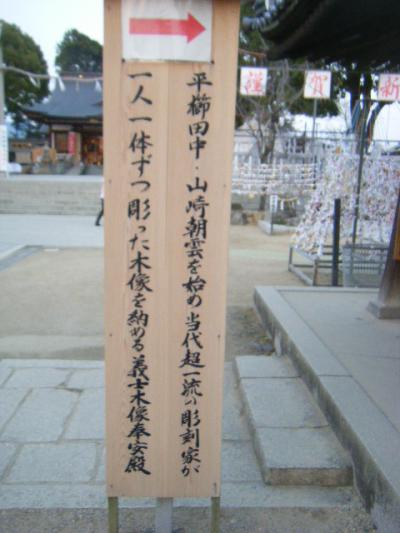 平櫛田中・山崎朝雲を始め当代超一流の彫刻家が
一人一体ずつ彫った木像を納める義士木像奉安殿
謹
賀
新